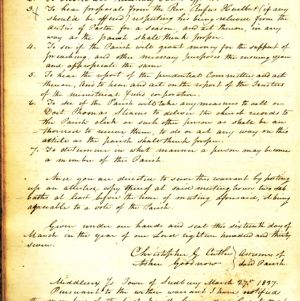 3. To hear proposals from the Rev. Rufus Hurlbut (if any
should be offered) respecting his being released from the
duties of Pastor for a season, and act thereon, in any
way as the Parish shall think proper.
4. To see if the Parish will grant money for the support of
preaching, and other necessary purposes the ensuing year
and appropriate the same.
5. To hear the report of the prudential Committee and act
thereon, And to hear and act on the report of the Trustees
of the Ministerial Fund corporation.
6. To see if the Parish will take any measures to call on
Doct Thomas Stearns to deliver the church records to
the Parish clerk or such other person as shall be au-
thorized to receive them, to do or act any way on this
article as the parish shall think proper.
7. To determine in what manner a person may become
a member of this Parish.
And you are directed to serve this warrant by posting
up an attested copy thereof at said meeting house two sab
baths at least before the time of meeting aforesaid, it being
agreeable to a vote of the Parish.
Given under our hands and seal this sixteenth day of
March in the year of our Lord eight hundred and thirty
seven.
Christopher G. Cutler } Assessors of
Asher Goodnow } said Parish
Middlesex ss Town of Sudbury March 27th 1837.
Pursuant to the within warrant I have notified